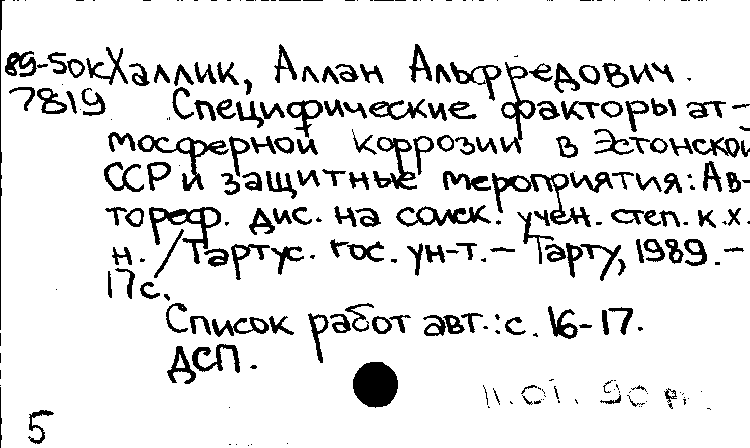 89-50к Халлик, Аллан Альфредович.
7819 Специфические факторы ат-
мосферной коррозии в Эстонской
ССР и защитные мероприятия: Ав-
тореф. дис. на соиск. учен. степ. к.х.
н. / Тартус. гос. ун-т. – Тарту, 1989. –
17с.
Список работ авт.: с. 16-17.
ДСП.
11.01.90
5